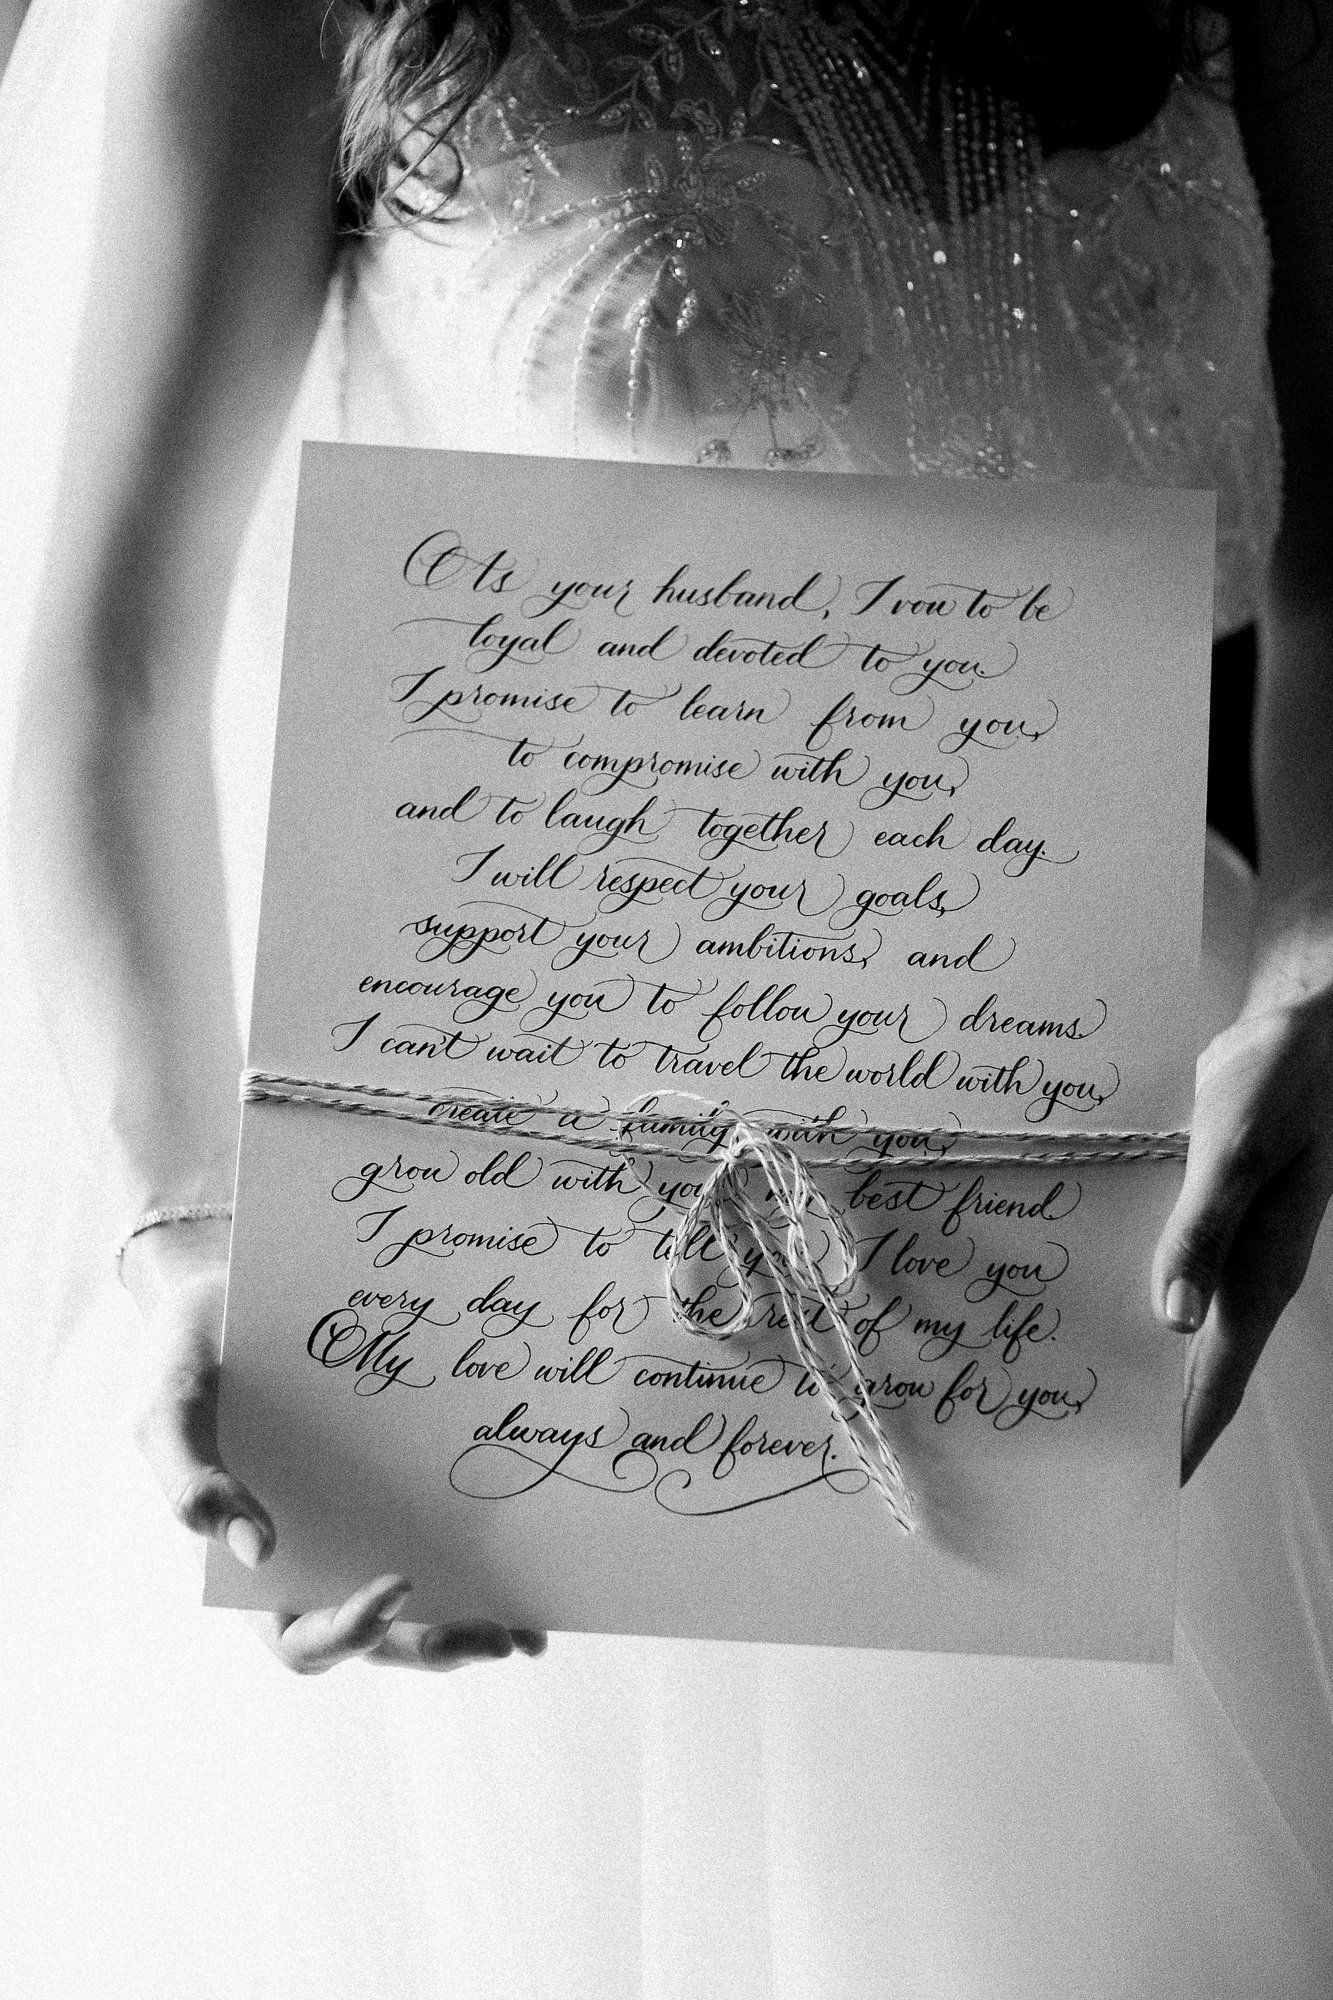 As your husband, I vow to be
loyal and devoted to you.
I promise to learn from you,
to compromise with you,
and to laugh together each day.
I will respect your goals,
support your ambitions, and
encourage you to follow your dreams.
I can't wait to travel the world with you,
create a family with you,
grow old with you, my best friend.
I promise to tell you I love you
every day for the rest of my life.
My love will continue to grow for you,
always and forever.